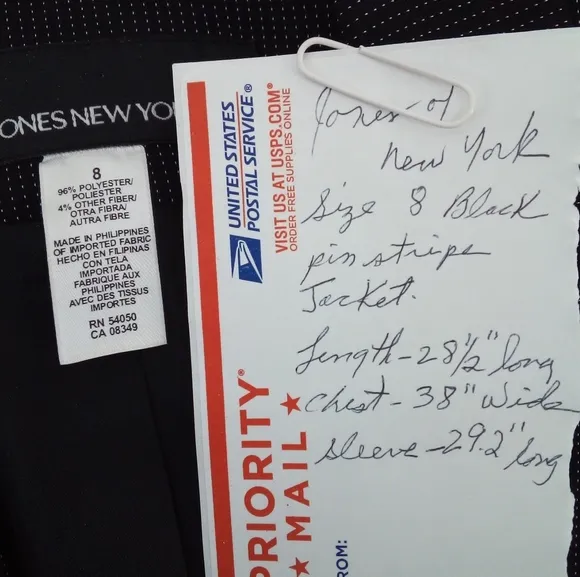 ONES NEW YO
8
96% POLYESTER/
POLIESTER
4% OTHER FIBER/
OTRA FIBRA/
AUTRA FIBRE
MADE IN PHILIPPINES
OF IMPORTED FABRIC
HECHO EN FILIPINAS
CON TELA
IMPORTADA
FABRIQUE AUX
PHILIPPINES
AVEC DES TISSUS
IMPORTES
RN 54050
CA 08349
UNITED STATES
POSTAL SERVICE®
VISIT US AT USPS.COM®
ORDER FREE SUPPLIES ONLINE
Jones of
New York
Size 8 Black
pin stripe
Jacket.
Length - 28 1/2" long
Chest - 38" Wide
sleeve - 29.2" long
PRIORITY®
★ MAIL ★
ROM: